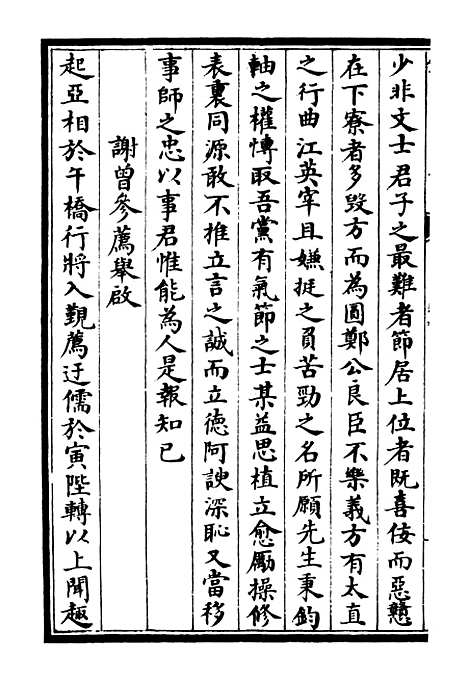 少非文士君子之最難者節居上位者既喜佞而惡戇
在下寮者多毀方而為圓鄭公良臣不樂義方有太直
之行曲江英宰且嫌挺之負苦勁之名所願先生秉鈞
軸之權慱取吾黨有氣節之士某益思植立愈勵操修
表裏同源敢不推立言之誠而立德阿諛深恥又當移
事師之忠以事君惟能為人是報知已
謝曾參薦舉啟
起亞相於午橋行將入覲薦迂儒於寅陛轉以上聞趣